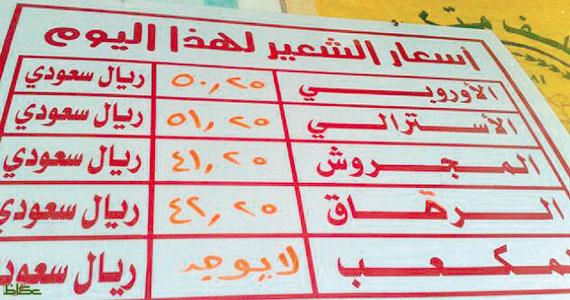 أسعار الشعير لهذا اليوم
الأوروبي ٥٠,٢٥ ريال سعودي
الأسترالي ٥١,٢٥ ريال سعودي
المجروش ٤١,٢٥ ريال سعودي
الرقاق ٤٢,٢٥ ريال سعودي
لمكعب لا يوجد ريال سعود
عكاظ